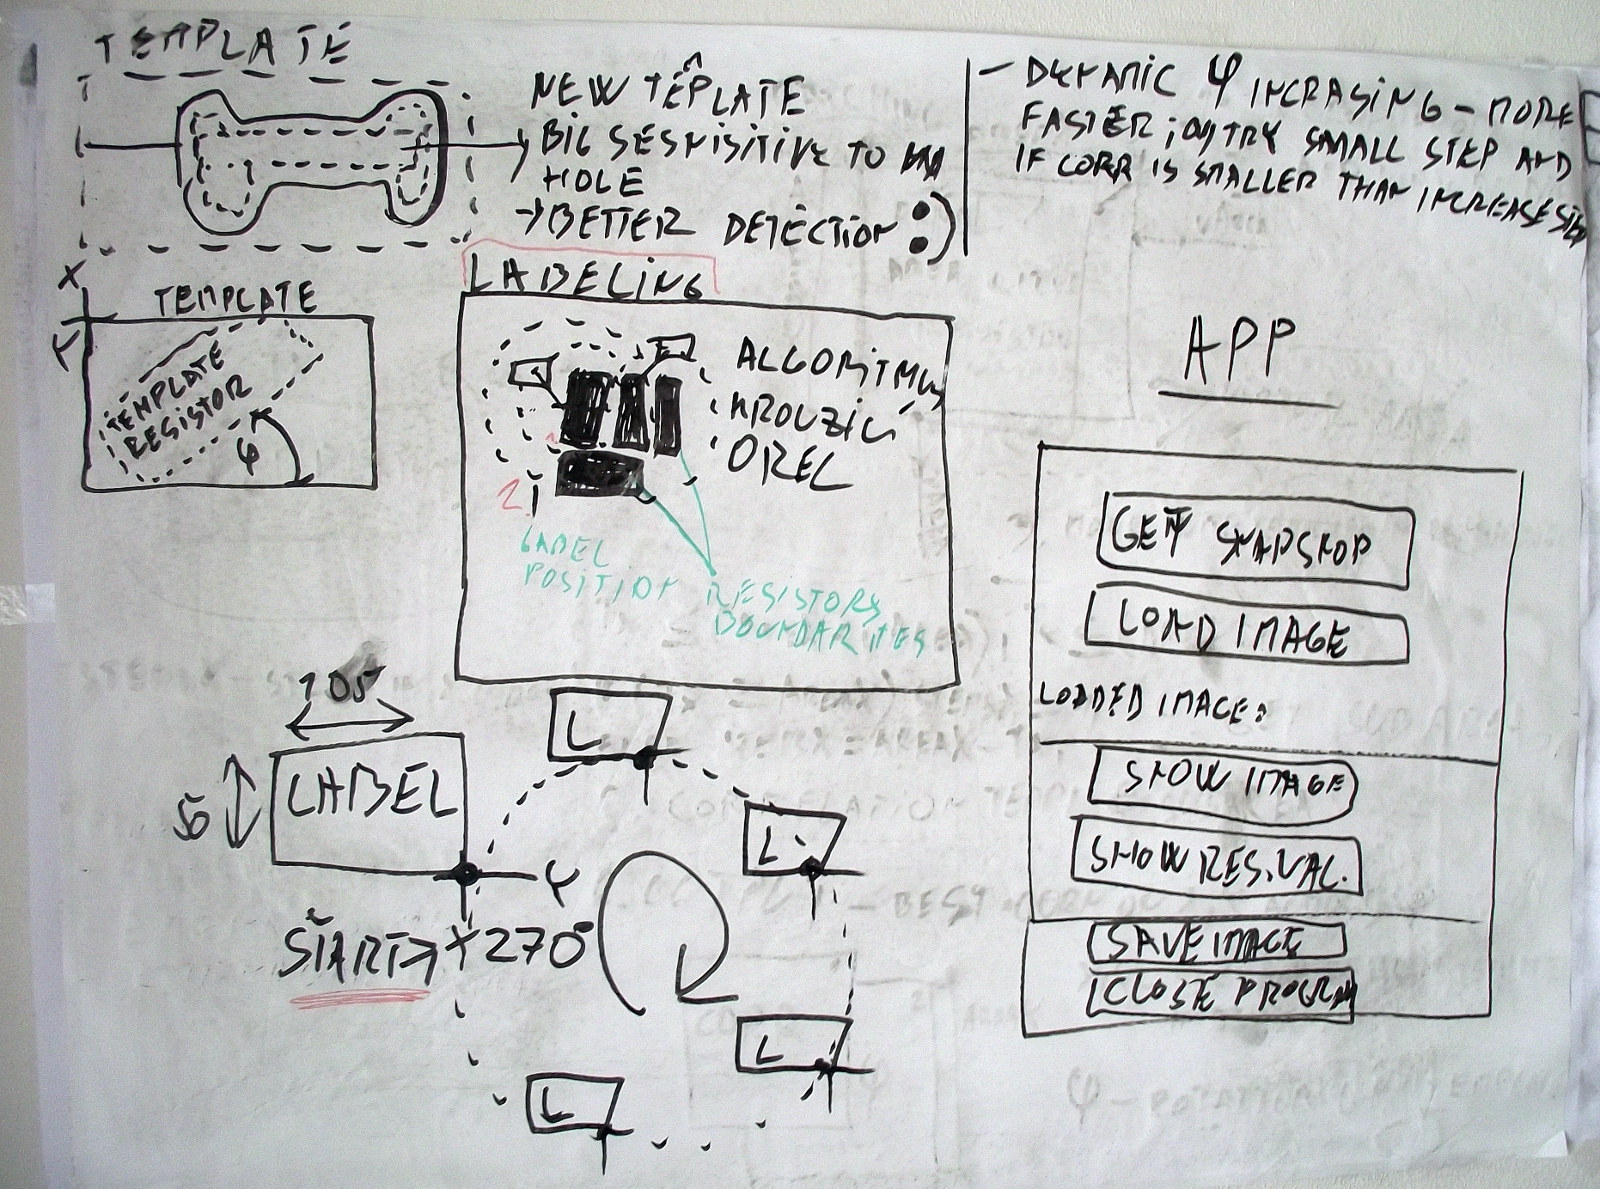 TEMPLATE
NEW TEPLATE
BIG SESNISITIVE TO
HOLE
→BETTER DETECTION :)
- DYNAMIC φ INCRASING - MORE
FASTER; TRY SMALL STEP AND
IF CORR IS SMALLER THAN INCREASE STEP
X
Y
TEMPLATE
TEMPLATE
RESISTOR
φ
LABELING
ALGORITMUS
KROUZÍCÍ
OREL
1
2
LABEL
POSITION
RESISTORS
BOUNDARITES
APP
GET SNAPSHOP
LOAD IMAGE
LODDED IMAGE:
SHOW IMAGE
SHOW RES. VAL.
SAVE IMAGE
CLOSE PROGRAM
105
LABEL
Y
X
START→
270°
L
L
L
L